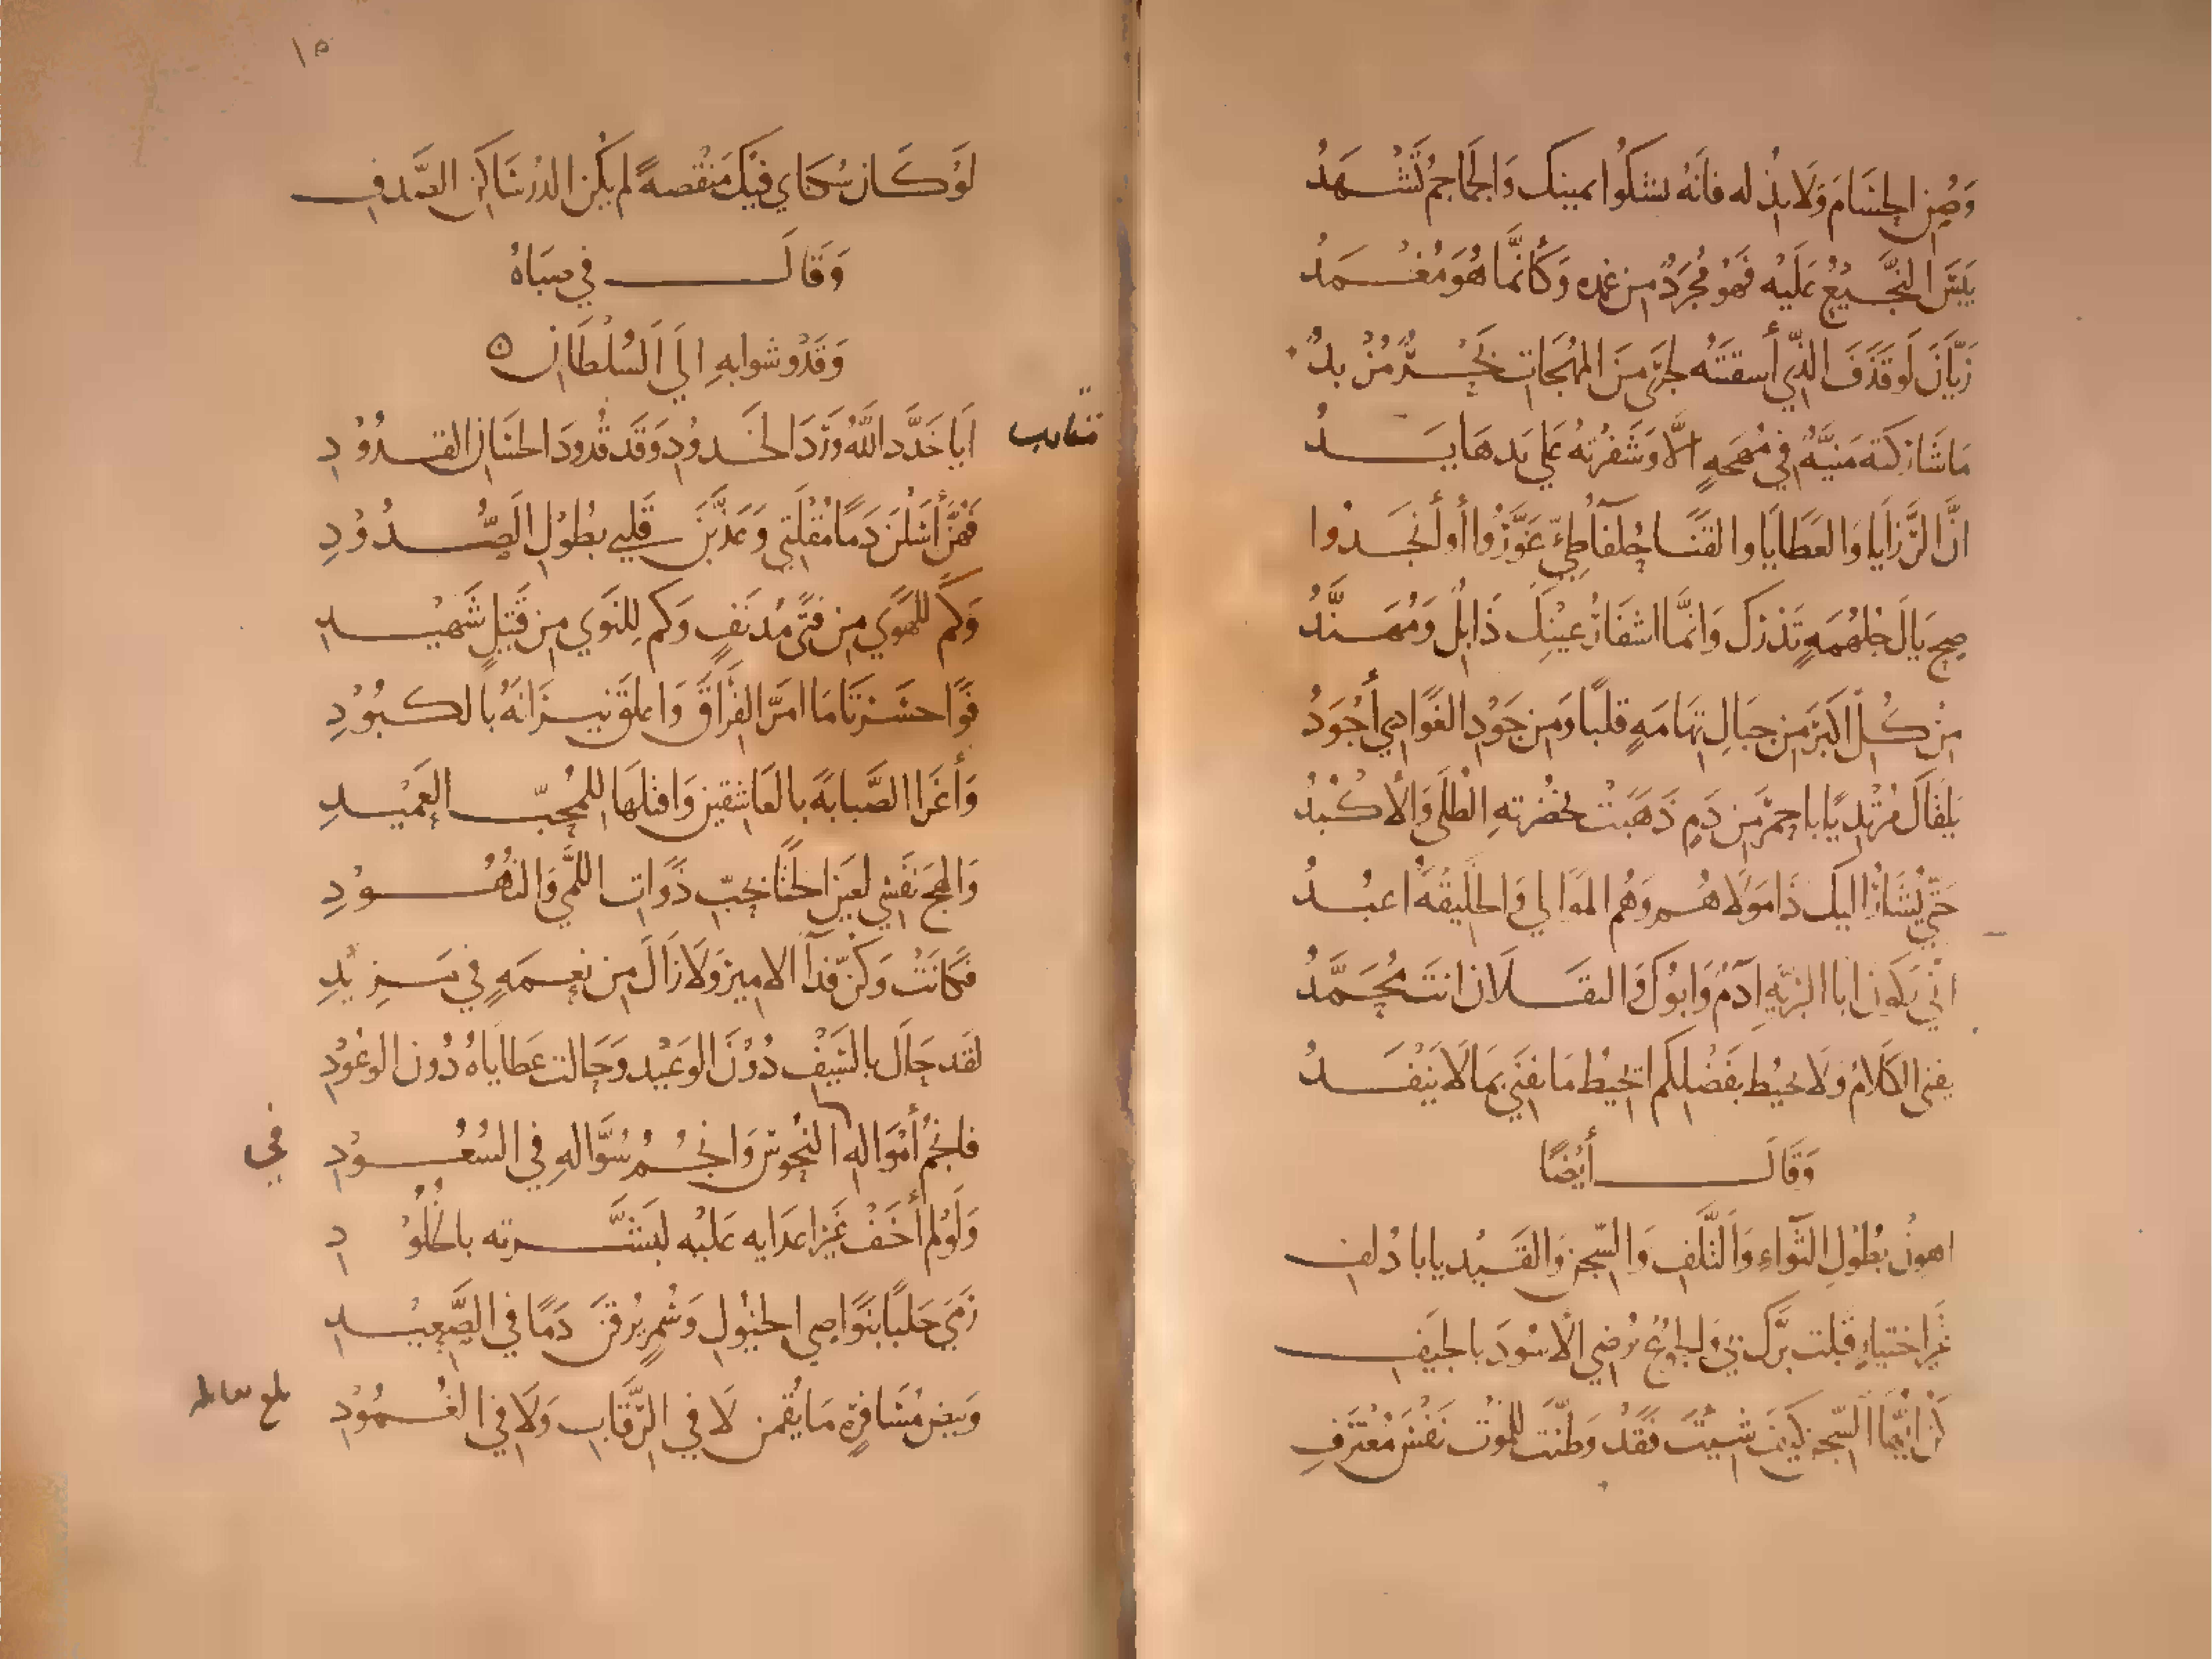 وَصُنِ الحُسَامَ وَلَا تذله فانَهُ يشكُوا يمينك وَالجَمَاجمُ تَشْهَدُ
يَبِسَ النَجِيعُ عَلَيْه فَهْوَ مُجَرَدٌ مِن غمده وَكَأنَّمَا هُوَ مُغْمَدُ
رَيَّانَ لَو قَذَفَ الذِّي أَسقَيْتَهُ لجَرَى مِنَ المُهَجَاتِ بَحْرٌ مُزْبِدُ
مَا شَارَكَتهُ مَنيَّةٌ فِي مُهْجَةٍ الَّا وَشَفْرَتُهُ عَلي يَدهَا يَدُ
انَّ الرَّزَايا وَالعَطَايَا والقَنَا حُلَفَآءُ طيّ غَوَّرُوا أَو أَنْجَدُوا
صِح يَالَ جُلْهُمَةٍ تَذَرْكَ وَانَّمَا اشفَارُ عَيْنِكَ ذَابِلٌ وَمُهَنَّدُ
مِنْ كُلِّ اكبَرَ مِن جبَالِ تِهَامَةٍ قلبًا وَمِن جَوْدِ الغَوَادِي أَجْوَدُ
يَلقَاكَ مُرْتَدِيًا باحمَرَ مِن دَمٍ ذَهَبَتْ بخُضْرَتهِ الطُلَى وَالأكْبُدُ
حَتَّي يُشَارُ اليكَ ذَا مَولَاهُم وَهُم المَوَالي وَالخَلِيقَةُ اعبُدُ
انّي يَكُونُ ابَا البَرَيَّةِ آدَمٌ وَابُوكَ وَالثقَلَانِ انتَ مُحَمَّدُ
يفنى الكَلَامُ وَلَا يحيُط بفَضْلِكُم ايُحيُط مَا يَفنَي بمَا لَا يَنْفَدُ
وَقَالَ أَيْضًا
اهونْ بطُوْلِ الثَّوَاءِ وَالتَّلَفِ وَالسِّجن وَالقَيْد يابا دُلفِ
غَيْرَ اختيَارٍ قَبِلت برَّكَ بي وَالجُوعُ يُرْضِي الأُسُودَ بالجِيَفِ
كُن ايُّهَا السِّجن كَيفَ شِيْتَ فَقَدْ وَطَّنْتُ للمَوْت نَفْسَ مُعْتَرفِ
١٥
لَوْ كَانَ سُكنَاي فيْكَ مَنْقَصهً لم يكُنِ الدُرُّ سَاكِنَ الصَّدفِ
وَقَالَ في صبَاهُ
وَقَدْ وشوا بهِ الَي السُلْطَانِ
متقارب
ايَا خَدَّد اللَّهُ وَرْدَ الخُدودِ وَقَد قُدودَ الحسَانِ القدُوْدِ
فَهُنَّ أَسَلْنَ دَمًا مُقْلَتِي وَعَذَّبْنَ قَلبِي بطُوْلِ الصُّدُوْدِ
وَكَم للهَوَي مِن فَتًى مُدْنَفٍ وَكَم لِلنَوَي مِن قَتِيلٍ شَهِيْدِ
فَوَا حَسْرَتَا مَا امَرَّ الفِرَاقَ وَاعلَقَ نيرَانَهُ بالكبُوْدِ
وَأَغْرَا الصَّبابةَ بالعَاشقين وَاقتلَهَا للمُحِبّ العَمِيْدِ
وَالهَجَ نَفسِي لغَيْرِ الخَنَا بحُبّ ذَوَاتِ اللَّمَي وَالنُهُوْدِ
فَكَانَتْ وَكُنَّ فِدَآ الامير وَلَا زَالَ مِن نعمَةٍ في مَزِيْدِ
لقَد حَالَ بالسَيْفِ دُوْنَ الوَعيْد وَحَالت عَطايَاهُ دُون الوعُوْدِ
فانجُمُ أَمْوَالهِ النُحُوس وَانجُمُ سُؤَالهِ فِي السُعُوْدِ
في
وَلَو لم أَخَفْ غَيْرَ اعدَايه عَلَيْه لبَشَّرته بالخُلُوْدِ
رَمَي حَلبًا بنَوَاصِي الخيُولِ وَسُمرٍ يُرِقنَ دَمًا في الصَّعِيْدِ
وَبيض مُسَافرةٍ مَا يُقمن لَا فِي الرِّقَابِ وَلَا فِي الغُمُوْدِ